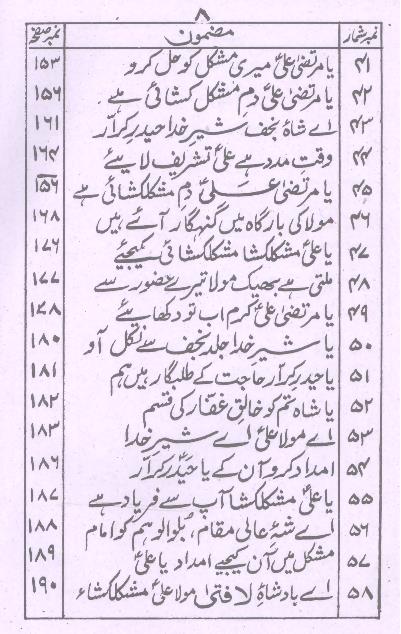 ۸
نمبر شمار مضمون نمبر صفحہ
۴۱ یا مرتضیٰ علیؑ میری مشکل کو حل کرو ۱۵۳
۴۲ یا مرتضیٰ علیؑ دم مشکل کشائی ہے ۱۵۶
۴۳ اے شاہ نجف شیر خدا حیدر کرار ۱۶۱
۴۴ وقت مدد ہے علیؑ تشریف لایئے ۱۶۴
۴۵ یا مرتضیٰ علیؑ دم مشکلکشائی ہے ۱۵۶
۴۶ مولا کی بارگاہ میں گنہگار آئے ہیں ۱۶۸
۴۷ یا علیؑ مشکلکشا مشکلکشائی کیجیئے ۱۷۶
۴۸ ملتی ہے بھیک مولا تیرے حضور سے ۱۷۷
۴۹ یا مرتضیٰ علیؑ کرم اب تو دکھایئے ۱۷۸
۵۰ یا شیر خدا جلد نجف سے نکل آو ۱۸۰
۵۱ یا حیدر کرار حاجت کے طلبگار ہیں ہم ۱۸۱
۵۲ یا شاہ تم کو خالق غفار کی قسم ۱۸۲
۵۳ اے مولا علیؑ اے شیر خدا ۱۸۳
۵۴ امداد کرو آن کے یا حیدر کرار ۱۸۶
۵۵ یا علیؑ مشکلکشا آپ سے فریاد ہے ۱۸۷
۵۶ اے شہ عالی مقام، بلوالو ہم کو امام ۱۸۸
۵۷ مشکل میں آن کیجیے امداد یا علیؑ ۱۸۹
۵۸ اے بادشاہ لا فتیٰ مولا علیؑ مشکلکشاء ۱۹۰